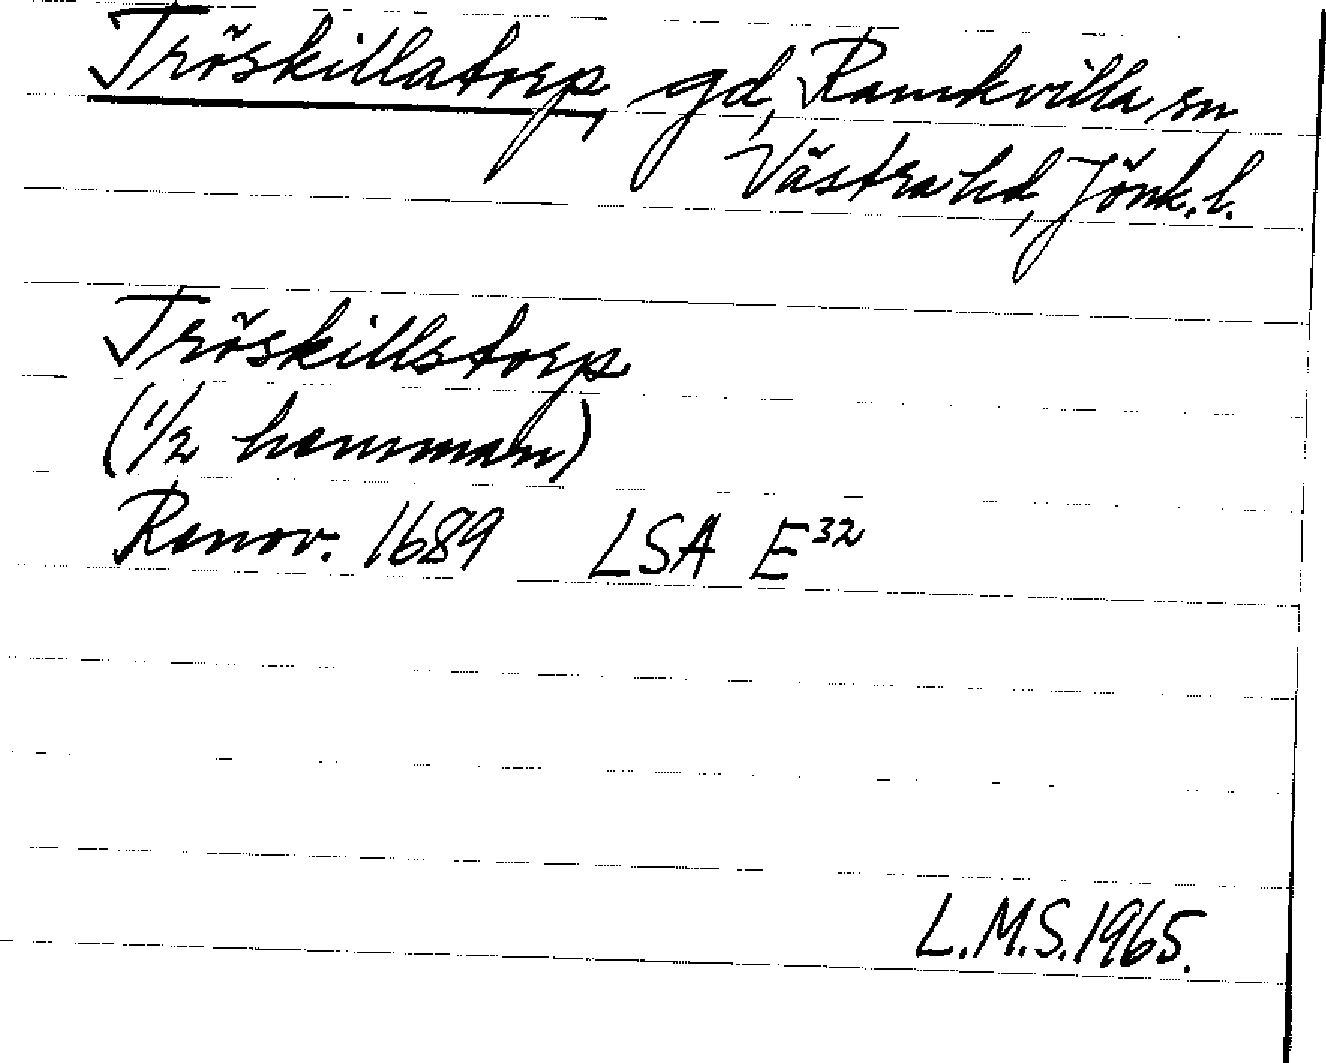 Tröskillatorp, gd, Ramkvilla sn,
Västra hd, Jönk. l.
Tröskillstorp
(1/2 hemman)
Renov. 1689 LSA E³²
L.M.S. 1965.